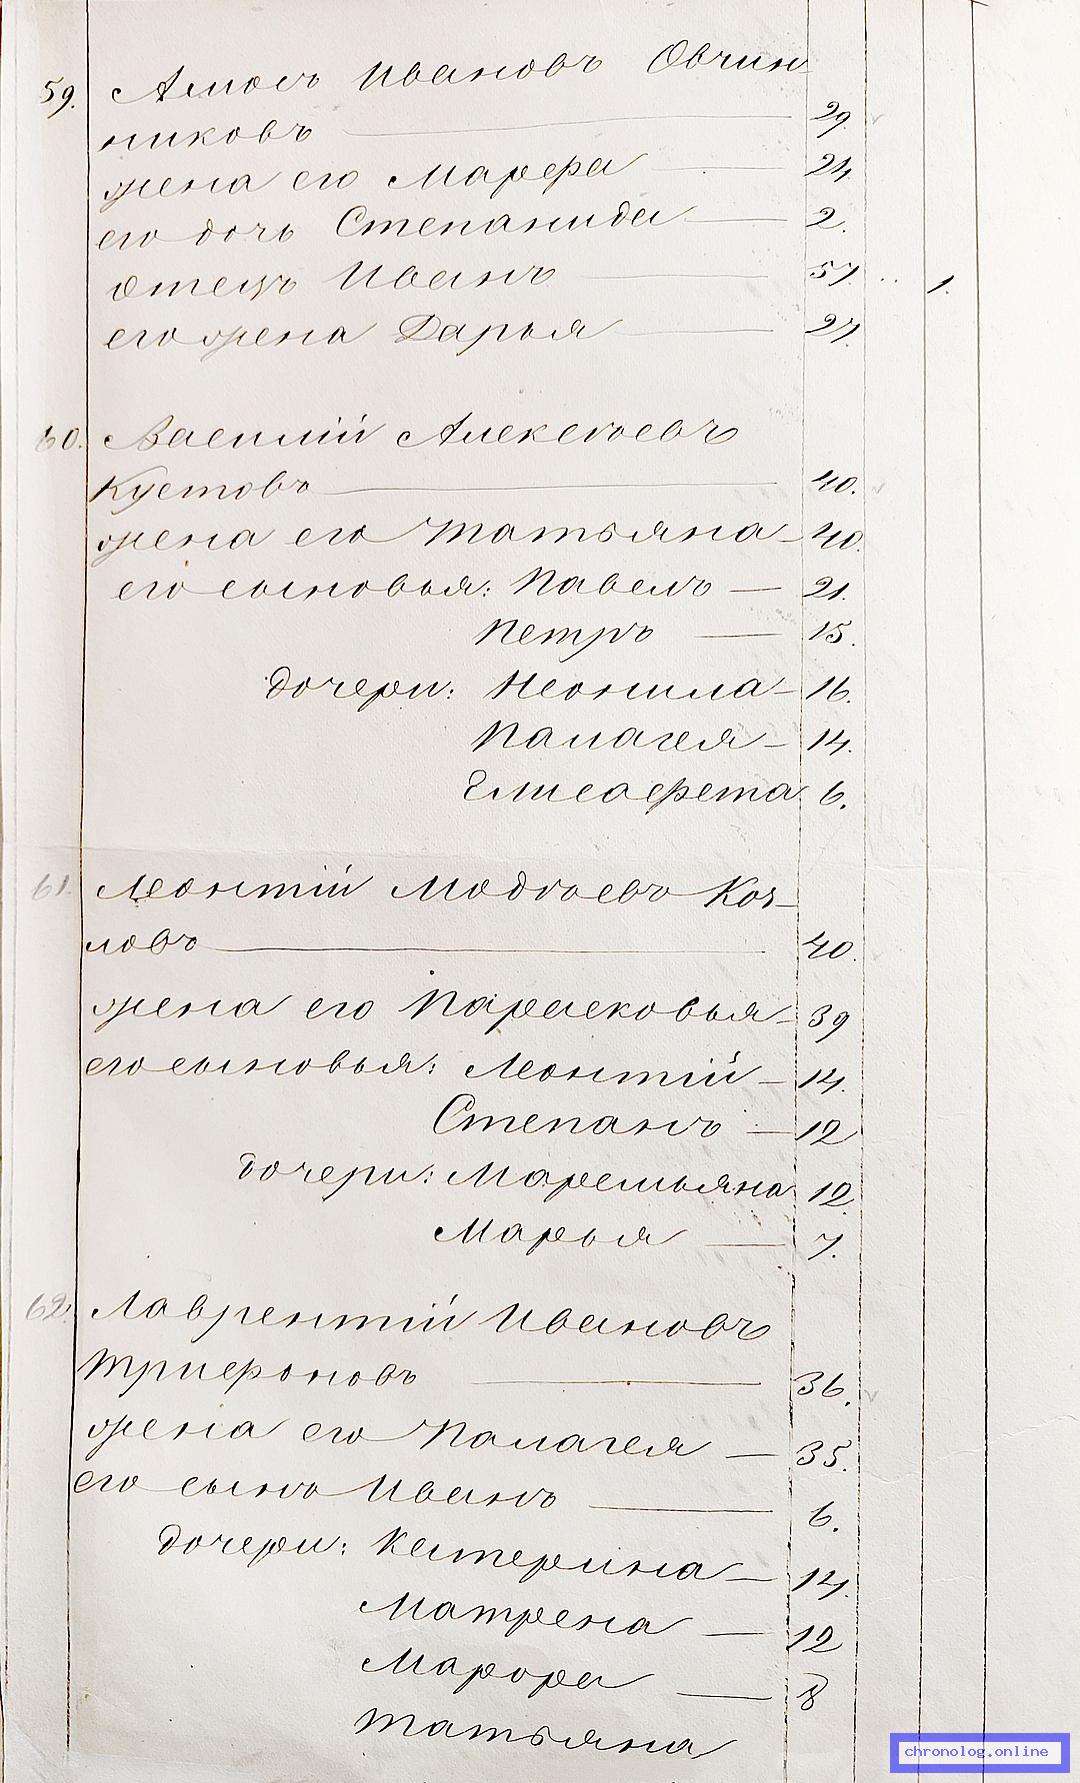 59. Амосъ Ивановъ Овчин
никовъ — 29.
жена его Марфа — 24.
его дочь Степанида — 2.
Отецъ Иванъ — 57. .. 1.
его жена Дарья — 27.
60. Василій Алексѣевъ
Кустовъ — 40.
жена его Татьяна — 40.
его сыновья: Павелъ — 21.
Петръ — 15.
дочери: Неонила — 16.
Палагея — 14.
Елисафета 6.
61. Леонтій Авдѣевъ Коз-
ловъ — 40.
жена его Парасковья — 39
его сыновья: Леонтій — 14.
Степанъ — 12
дочери: Маремьяна 12.
Марья — 7.
62. Лаврентій Ивановъ
Трифоновъ — 36.
жена его Палагея — 35.
его сынъ Иванъ — 6.
дочери: Катерина — 14.
Матрена — 12
— 8
Татьяна
chronolog.online